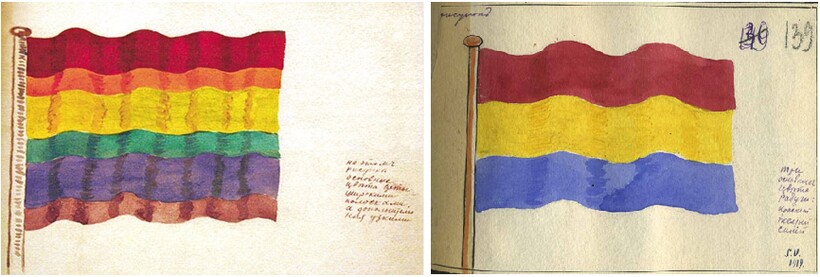 на этомъ
рисункѣ
основные
цвѣта взяты
широкими
полосками,
а дополнител
ные узкими
рисунокъ
139
три
основные
цвѣта
радуги:
красный
синій
1919.